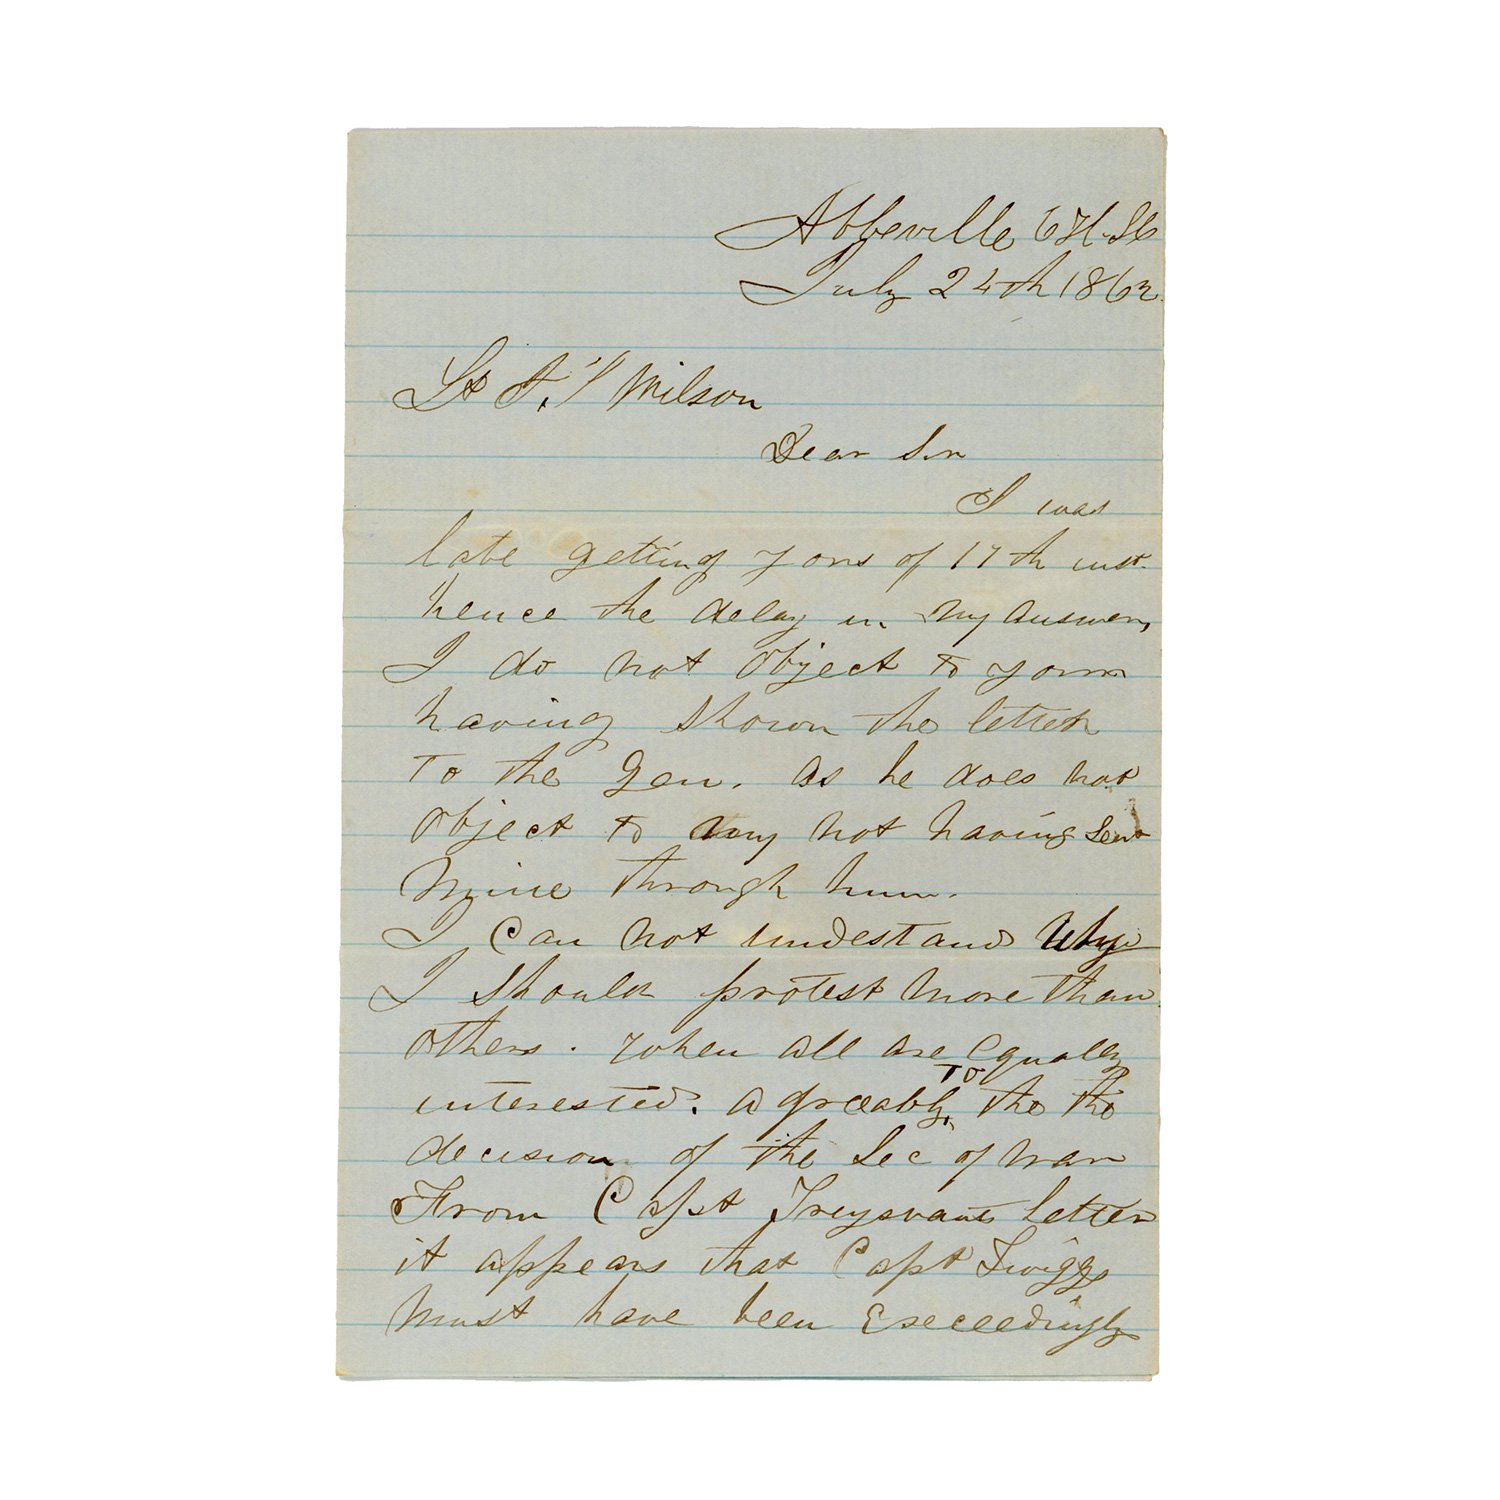 Abbeville C H. SC
July 24th 1862
Lt J. Wilson
Dear Sir
I was
late getting yours of 17th inst.
hence the delay in my answer,
I do not object to your
having shown the letter
To the Gen. as he does not
object to my not having sent
Mine through him.
I Can not undestand Why
I should protest more than
others. when all are Equally
interested. agreeably To the the
decision of the Sec of War
From Capt Treysvants letter
it appears that Capt Twiggs
must have been Exceedingly